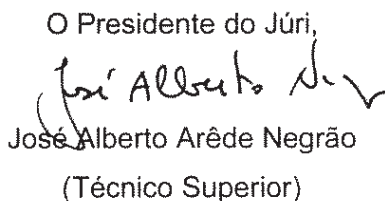 O Presidente do Júri,
José Alberto Neg
José Alberto Arêde Negrão
(Técnico Superior)